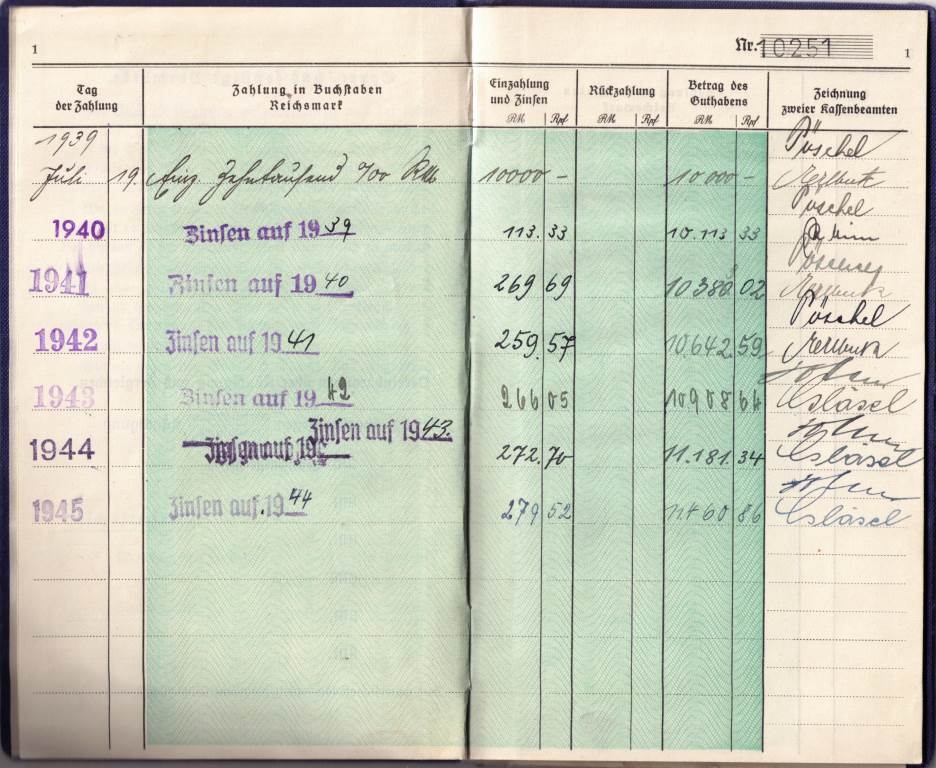 1
Nr. 10251
1
Tag der Zahlung
Zahlung in Buchstaben Reichsmark
Einzahlung und Zinsen
Rückzahlung
Betrag des Guthabens
Zeichnung zweier Kassenbeamten
RM Rpf RM Rpf RM Rpf
1939 Pöschel
Juli 19. Einz. Zehntausend RM 10000 – 10000 –
Pöschel
1940 Zinsen auf 1939 113.33 10.113 33
1941 Zinsen auf 1940 269 69 10380 02
Pöschel
1942 Zinsen auf 1941 259.57 10.642.59
1943 Zinsen auf 1942 266 05 10908 64
Zinsen auf 1943.
1944 Zinsen auf 19 272.70 11.181.34
1945 Zinsen auf 1944 279 52 11460 86